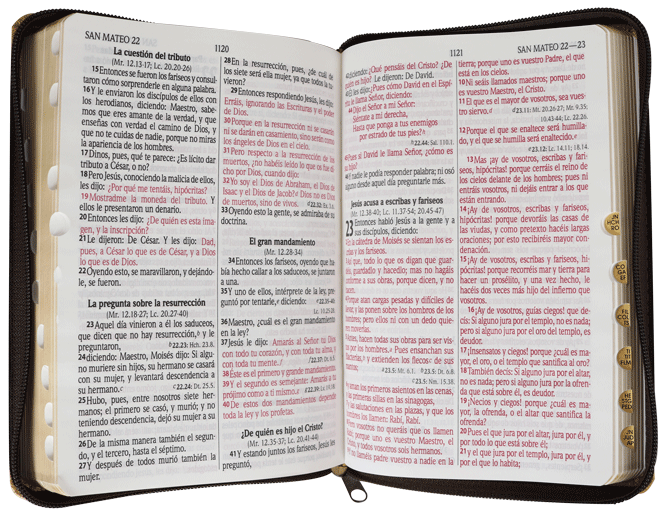 SAN MATEO 22
1120
La cuestión del tributo
(Mr. 12.13-17; Lc. 20.20-26)
15 Entonces se fueron los fariseos y consul-
taron cómo sorprenderle en alguna palabra.
16 Y le enviaron los discípulos de ellos con
los herodianos, diciendo: Maestro, sabe-
mos que eres amante de la verdad, y que
enseñas con verdad el camino de Dios, y
que no te cuidas de nadie, porque no miras
la apariencia de los hombres.
17 Dinos, pues, qué te parece: ¿Es lícito dar
tributo a César, o no?
18 Pero Jesús, conociendo la malicia de ellos,
les dijo: ¿Por qué me tentáis, hipócritas?
19 Mostradme la moneda del tributo. Y
ellos le presentaron un denario.
20 Entonces les dijo: ¿De quién es esta ima-
gen, y la inscripción?
21 Le dijeron: De César. Y les dijo: Dad,
pues, a César lo que es de César, y a Dios
lo que es de Dios.
22 Oyendo esto, se maravillaron, y dejándo-
le, se fueron.
La pregunta sobre la resurrección
(Mr. 12.18-27; Lc. 20.27-40)
23 Aquel día vinieron a él los saduceos,
que dicen que no hay resurrección, y le
preguntaron, 22.23: Hch. 23.8.
24 diciendo: Maestro, Moisés dijo: Si algu-
no muriere sin hijos, su hermano se casará
con su mujer, y levantará descendencia a
su hermano. 22.24: Dt. 25.5.
25 Hubo, pues, entre nosotros siete her-
manos; el primero se casó, y murió; y no
teniendo descendencia, dejó su mujer a su
hermano.
26 De la misma manera también el segun-
do, y el tercero, hasta el séptimo.
27 Y después de todos murió también la
mujer.
28 En la resurrección, pues, ¿de cuál de
los siete será ella mujer, ya que todos la tu-
vieron?
29 Entonces respondiendo Jesús, les dijo:
Erráis, ignorando las Escrituras y el poder
de Dios.
30 Porque en la resurrección ni se casarán
ni se darán en casamiento, sino serán como
los ángeles de Dios en el cielo.
31 Pero respecto a la resurrección de los
muertos, ¿no habéis leído lo que os fue di-
cho por Dios, cuando dijo:
32 Yo soy el Dios de Abraham, el Dios de
Isaac y el Dios de Jacob? Dios no es Dios de
muertos, sino de vivos. 22.32: Ex. 3.6.
33 Oyendo esto la gente, se admiraba de su
doctrina.
El gran mandamiento
(Mr. 12.28-34)
34 Entonces los fariseos, oyendo que ha-
bía hecho callar a los saduceos, se juntaron
a una.
35 Y uno de ellos, intérprete de la ley, pre-
guntó por tentarle, diciendo: 22.35-40:
Lc. 10.25-28.
36 Maestro, ¿cuál es el gran mandamiento
en la ley?
37 Jesús le dijo: Amarás al Señor tu Dios
con todo tu corazón, y con toda tu alma, y
con toda tu mente. 22.37: Dt. 6.5.
38 Éste es el primero y grande mandamiento.
39 Y el segundo es semejante: Amarás a tu
prójimo como a ti mismo. 22.39: Lv. 19.18.
40 De estos dos mandamientos depende
toda la ley y los profetas.
¿De quién es hijo el Cristo?
(Mr. 12.35-37; Lc. 20.41-44)
41 Y estando juntos los fariseos, Jesús les
preguntó,
1121
SAN MATEO 22—23
42 diciendo: ¿Qué pensáis del Cristo? ¿De
quién es hijo? Le dijeron: De David.
43 Él les dijo: ¿Pues cómo David en el Espí-
ritu le llama Señor, diciendo:
44 Dijo el Señor a mi Señor:
Siéntate a mi derecha,
Hasta que ponga a tus enemigos
por estrado de tus pies?
22.44: Sal. 110.1.
45 Pues si David le llama Señor, ¿cómo es
su hijo?
46 Y nadie le podía responder palabra; ni osó
alguno desde aquel día preguntarle más.
Jesús acusa a escribas y fariseos
(Mr. 12.38-40; Lc. 11.37-54; 20.45-47)
23 Entonces habló Jesús a la gente y a
sus discípulos, diciendo:
2 En la cátedra de Moisés se sientan los es-
cribas y los fariseos.
3 Así que, todo lo que os digan que guar-
déis, guardadlo y hacedlo; mas no hagáis
conforme a sus obras, porque dicen, y no
hacen.
4 Porque atan cargas pesadas y difíciles de
llevar, y las ponen sobre los hombros de los
hombres; pero ellos ni con un dedo quie-
ren moverlas.
5 Antes, hacen todas sus obras para ser vis-
tos por los hombres. Pues ensanchan sus
filacterias, y extienden los flecos de sus
mantos; 23.5: Mt. 6.1. 23.5: Dt. 6.8.
23.5: Nm. 15.38.
6 y aman los primeros asientos en las cenas,
y las primeras sillas en las sinagogas,
7 y las salutaciones en las plazas, y que los
hombres los llamen: Rabí, Rabí.
8 Pero vosotros no queráis que os llamen
Rabí; porque uno es vuestro Maestro, el
Cristo, y todos vosotros sois hermanos.
9 Y no llaméis padre vuestro a nadie en la
tierra; porque uno es vuestro Padre, el que
está en los cielos.
10 Ni seáis llamados maestros; porque uno
es vuestro Maestro, el Cristo.
11 El que es el mayor de vosotros, sea vues-
tro siervo. 23.11: Mt. 20.26-27; Mr. 9.35;
10.43-44; Lc. 22.26.
12 Porque el que se enaltece será humilla-
do, y el que se humilla será enaltecido.
23.12: Lc. 14.11; 18.14.
13 Mas ¡ay de vosotros, escribas y fari-
seos, hipócritas! porque cerráis el reino de
los cielos delante de los hombres; pues ni
entráis vosotros, ni dejáis entrar a los que
están entrando.
14 ¡Ay de vosotros, escribas y fariseos,
hipócritas! porque devoráis las casas de
las viudas, y como pretexto hacéis largas
oraciones; por esto recibiréis mayor con-
denación.
15 ¡Ay de vosotros, escribas y fariseos,
hipócritas! porque recorréis mar y tierra para
hacer un prosélito, y una vez hecho, le
hacéis dos veces más hijo del infierno que
vosotros.
16 ¡Ay de vosotros, guías ciegos! que de-
cís: Si alguno jura por el templo, no es nada;
pero si alguno jura por el oro del templo, es
deudor.
17 ¡Insensatos y ciegos! porque ¿cuál es ma-
yor, el oro, o el templo que santifica al oro?
18 También decís: Si alguno jura por el altar,
no es nada; pero si alguno jura por la ofren-
da que está sobre él, es deudor.
19 ¡Necios y ciegos! porque ¿cuál es ma-
yor, la ofrenda, o el altar que santifica la
ofrenda?
20 Pues el que jura por el altar, jura por él, y
por todo lo que está sobre él;
21 y el que jura por el templo, jura por él, y
por el que lo habita;